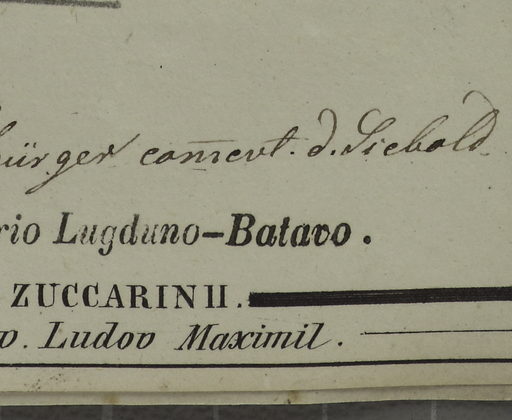 ürger comm̅ert. d. Siebold
rio Lugduno–Batavo.
ZUCCARINII.
v. Ludov Maximil.